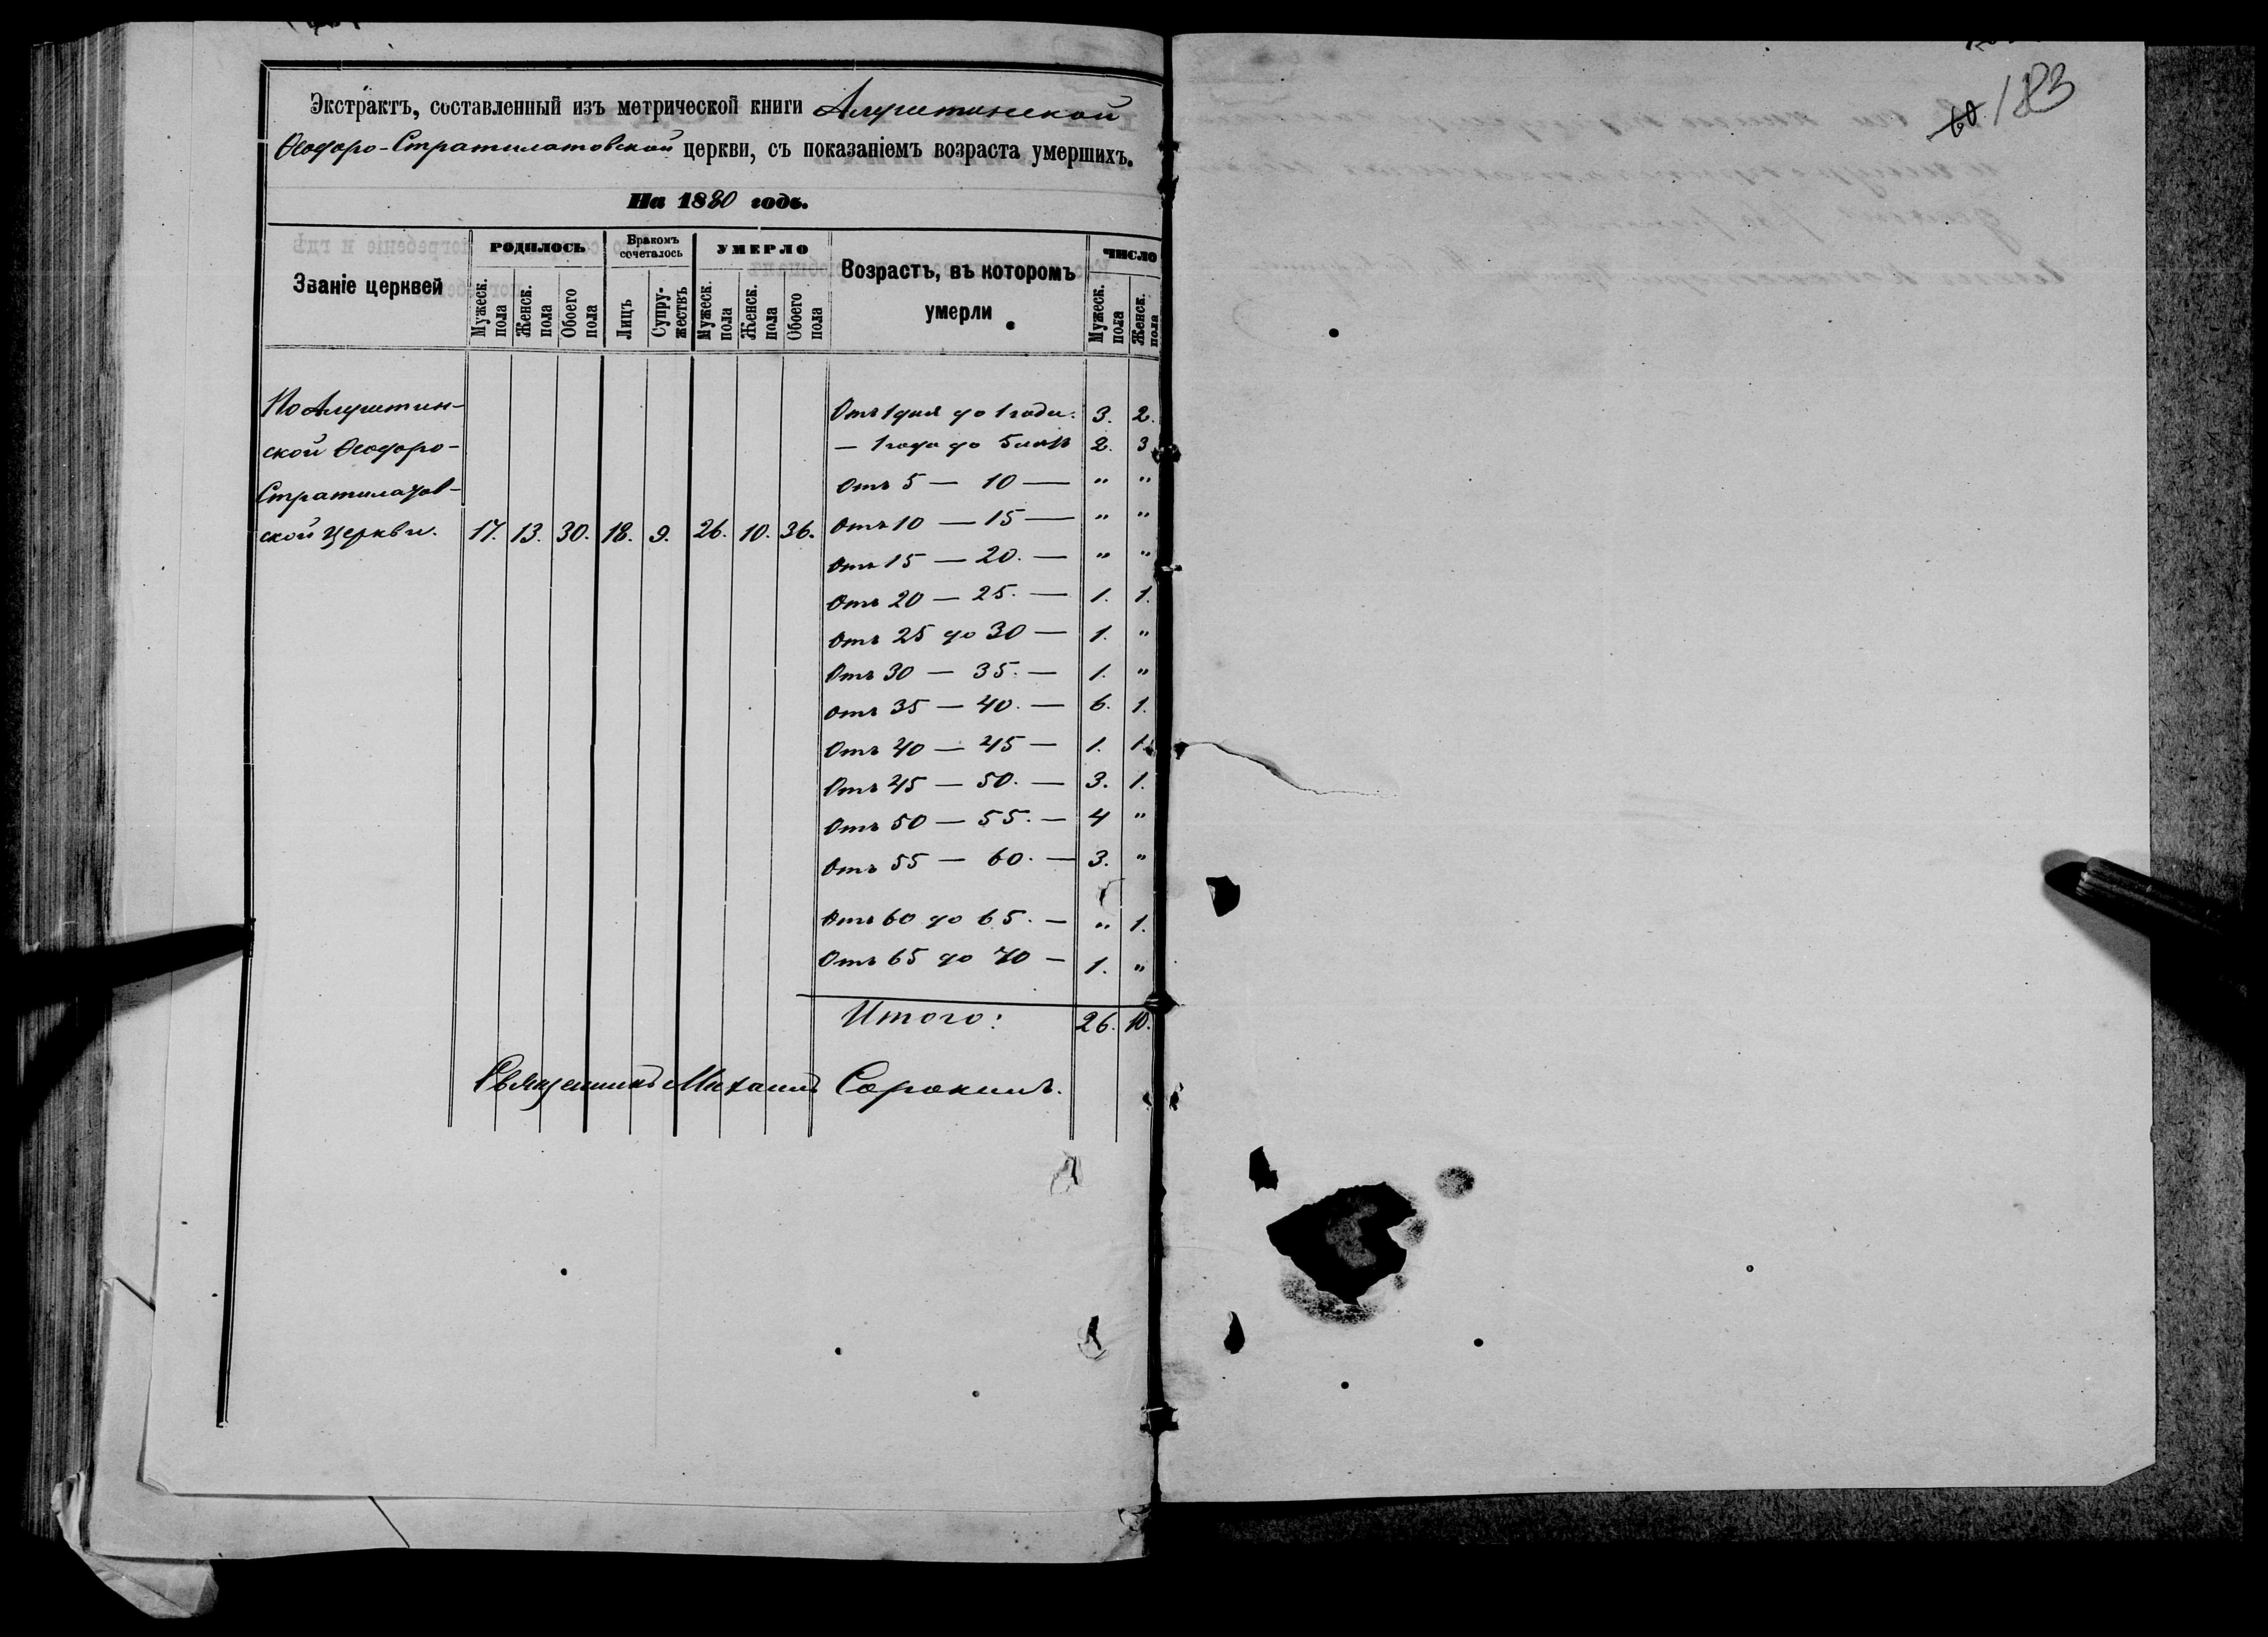 Экстрактъ, составленный изъ метрической книги Алуштинской
Ѳеодоро-Стратилатовской церкви, съ показаніемъ возраста умершихъ.
На 1880 годъ.
Званіе церквей
РОДИЛОСЬ
Мужеск. пола
Женск. пола
Обоего пола
Бракомъ сочеталось
Лицъ
Супружествъ
УМЕРЛО
Мужеск. пола
Женск. пола
Обоего пола
Возрастъ, въ которомъ
умерли
ЧИСЛО
Мужеск. пола
Женск. пола
По Алуштин-
ской Ѳеодоро-
Стратилатов-
ской Церкви. 17. 13. 30. 18. 9. 26. 10. 36.
Отъ 1 дня до 1 года. 3. 2.
— 1 года до 5 лѣтъ 2. 3
Отъ 5 — 10 — " "
Отъ 10 — 15 — " "
Отъ 15 — 20. — " "
Отъ 20 — 25. — 1. 1.
Отъ 25 до 30 — 1. "
Отъ 30 — 35. — 1. "
Отъ 35 — 40. — 6. 1.
Отъ 40 — 45 — 1. 1.
Отъ 45 — 50. — 3. 1.
Отъ 50 — 55. — 4 "
Отъ 55 — 60. — 3. "
Отъ 60 до 65. — " 1.
Отъ 65 до 70 — 1. "
Итого: 26. 10.
Священникъ Михаилъ Сорокинъ.
60. 183